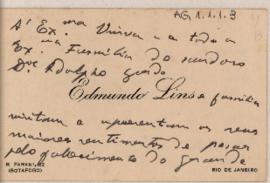 AG 1.1.1.3
A' Ex.ma Viuva e a toda a
Ex.ma Familia do saudoso
Dr. Adolpho Gordo
Edmundo Lins e familia
visitam e apresentam os seus
maiores sentimentos de pezar
pelo fallecimento do grande
(BOTAFOGO)
RIO DE JANEIRO